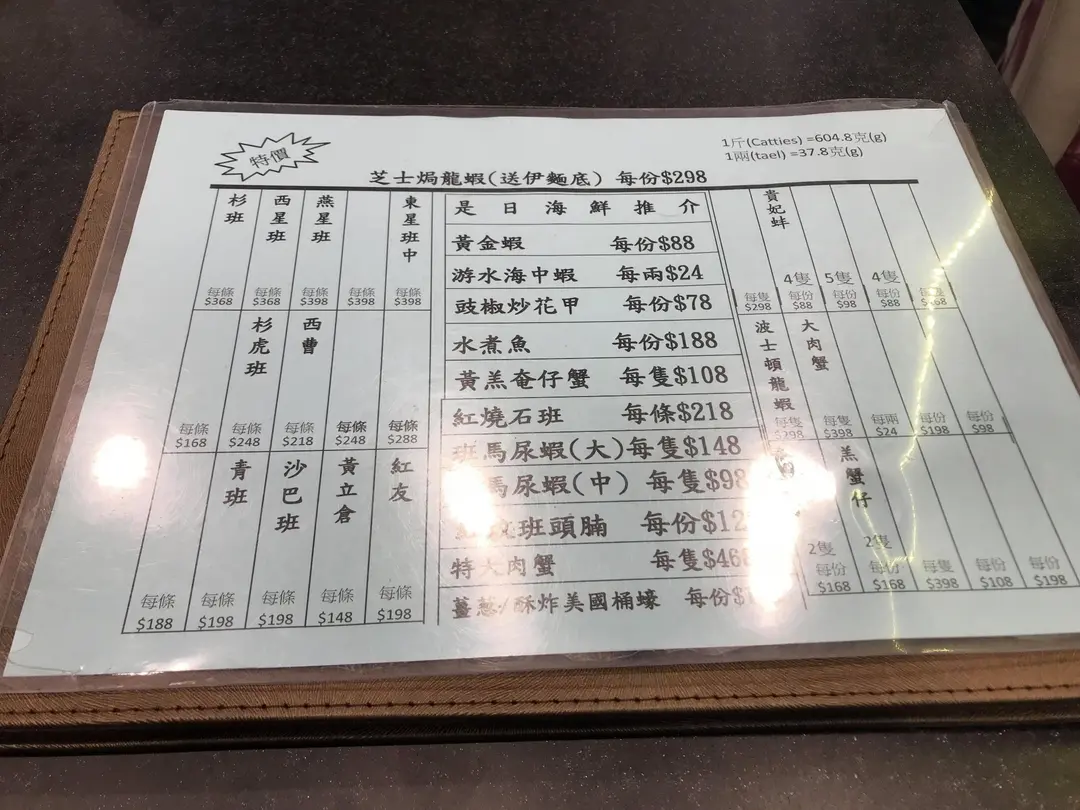 特價
1斤(Catties) =604.8克(g)
1兩(tael) =37.8克(g)
芝士焗龍蝦(送伊麵底) 每份$298
杉班
西星班
燕星班
東星班中
每條 每條 每條 每條 每條
$368 $368 $398 $398 $398
杉虎班
西曹
每條 每條 每條 每條 每條
$168 $248 $218 $248 $288
青班
沙巴班
黃立倉
紅友
每條 每條 每條 每條 每條
$188 $198 $198 $148 $198
是日海鮮推介
黃金蝦 每份$88
游水海中蝦 每兩$24
豉椒炒花甲 每份$78
水煮魚 每份$188
黃羔奄仔蟹 每隻$108
紅燒石班 每條$218
班馬尿蝦(大)每隻$148
馬尿蝦(中) 每隻$98
班頭腩 每份$12
特大肉蟹 每隻$46
薑蔥/酥炸美國桶蠔 每份$
貴妃蚌
4隻 5隻 4隻
每隻 每份 每份 每份
$298 $88 $98 $88
波士頓龍蝦
大肉蟹
每隻 每隻 每兩 每份 每份
$298 $398 $24 $198 $98
羔蟹仔
2隻 2隻
每份 每份 每隻 每份 每份
$168 $168 $398 $108 $198